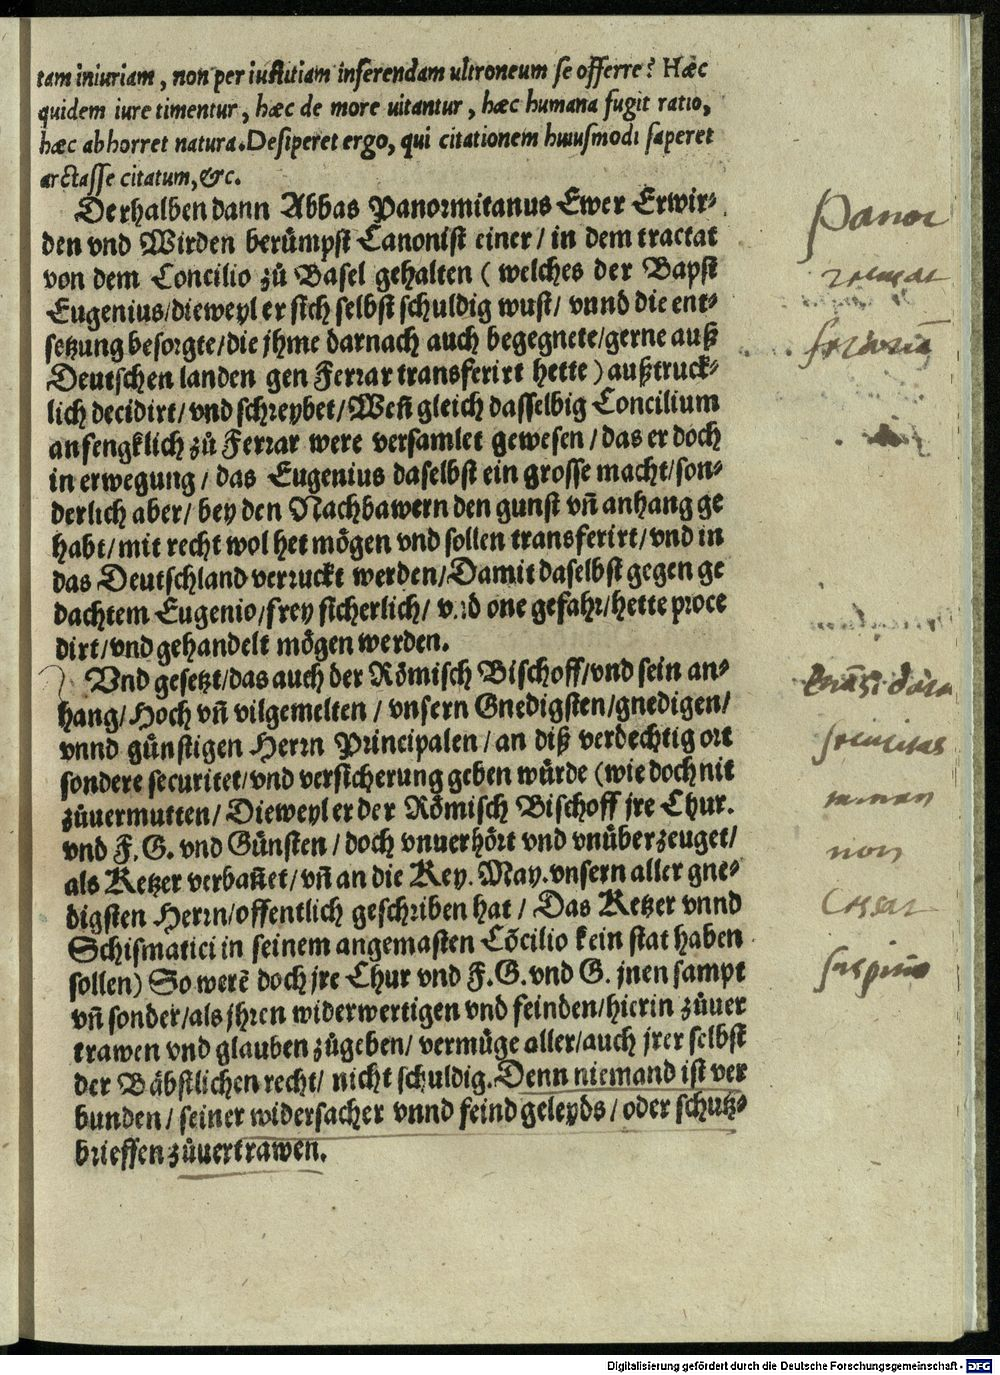 tam iniuriam, non per iustitiam inferendam ultroneum se offerre? Hæc
quidem iure timentur, hæc de more uitantur, hæc humana fugit ratio,
hæc abhorret natura. Desiperet ergo, qui citationem huiusmodi saperet
arctasse citatum, &c.
Derhalben dann Abbas Panormitanus Ewer Erwir-
den vnd Wirden berümpst Canonist einer / in dem tractat
von dem Concilio zů Basel gehalten ( welches der Bapst
Eugenius/dieweyl er sich selbst schuldig wust/ vnnd die ent-
setzung besorgte/die jhme darnach auch begegnete/gerne auß
Deutschen landen gen Ferrar transferirt hette ) außtruck-
lich decidirt/ vnd schreybet/Weñ gleich dasselbig Concilium
anfengklich zů Ferrar were versamlet gewesen / das er doch
in erwegung / das Eugenius daselbst ein grosse macht/son-
derlich aber/ bey den Nachbawern den gunst vñ anhang ge
habt/mit recht wol het mögen vnd sollen transferirt/vnd in
das Deutschland verruckt werden/Damit daselbst gegen ge
dachtem Eugenio/frey sicherlich/ vnd one gefahr/hette proce
dirt/vnd gehandelt mögen werden.
Vnd gesetzt/das auch der Römisch Bischoff/vnd sein an-
hang/Hoch vñ vilgemelten / vnsern Gnedigsten/gnedigen/
vnnd günstigen Herrn Principalen/an diß verdechtig ort
sondere securitet/vnd versicherung geben würde (wie doch nit
zůuermutten/ Dieweyl er der Römisch Bischoff jre Chur.
vnd F.G. vnd Günsten / doch vnuerhört vnd vnüberzeuget/
als Ketzer verbañet/vñ an die Key. May. vnsern aller gne-
digsten Herrn/offentlich geschriben hat / Das Ketzer vnnd
Schismatici in seinem angemasten Cōcilio kein stat haben
sollen) So werē doch jre Chur vnd F.G. vnd G. jnen sampt
vñ sonder/als jhren widerwertigen vnd feinden/hierin zůuer
trawen vnd glauben zůgeben/ vermüge aller/auch jrer selbst
der Bäbstlichen recht/ nicht schuldig. Denn niemand ist ver
bunden / seiner widersacher vnnd feind geleyds / oder schutz-
brieffen zůuertrawen.
Panor
non
Digitalisierung gefördert durch die Deutsche Forschungsgemeinschaft - DFG